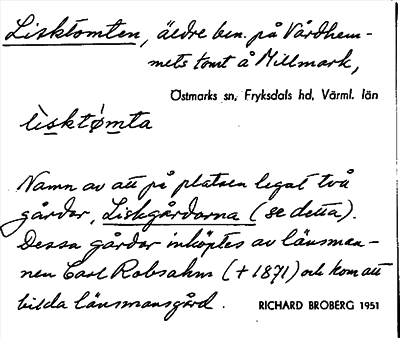 Lisktomten, äldre ben. på Vårdhem-
mets tomt å Millmark,
Östmarks sn, Fryksdals hd, Värml. län
lisktømta
Namn av att på platsen legat två
gårdar, Liskgårdarna (se detta).
Dessa gårdar inköptes av länsman-
nen Carl Robsahm (+ 1871) och kom att
bilda länsmansgård.
RICHARD BROBERG 1951